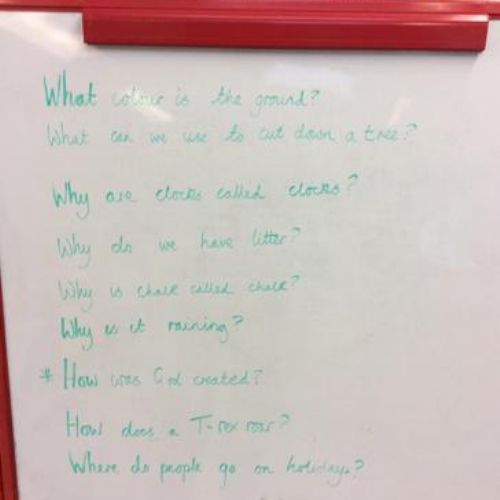 What colour is the ground?
What can we use to cut down a tree?
Why are clocks called clocks?
Why do we have litter?
Why is chalk called chalk?
Why is it raining?
* How was God created?
How does a T-rex roar?
Where do people go on holidays?